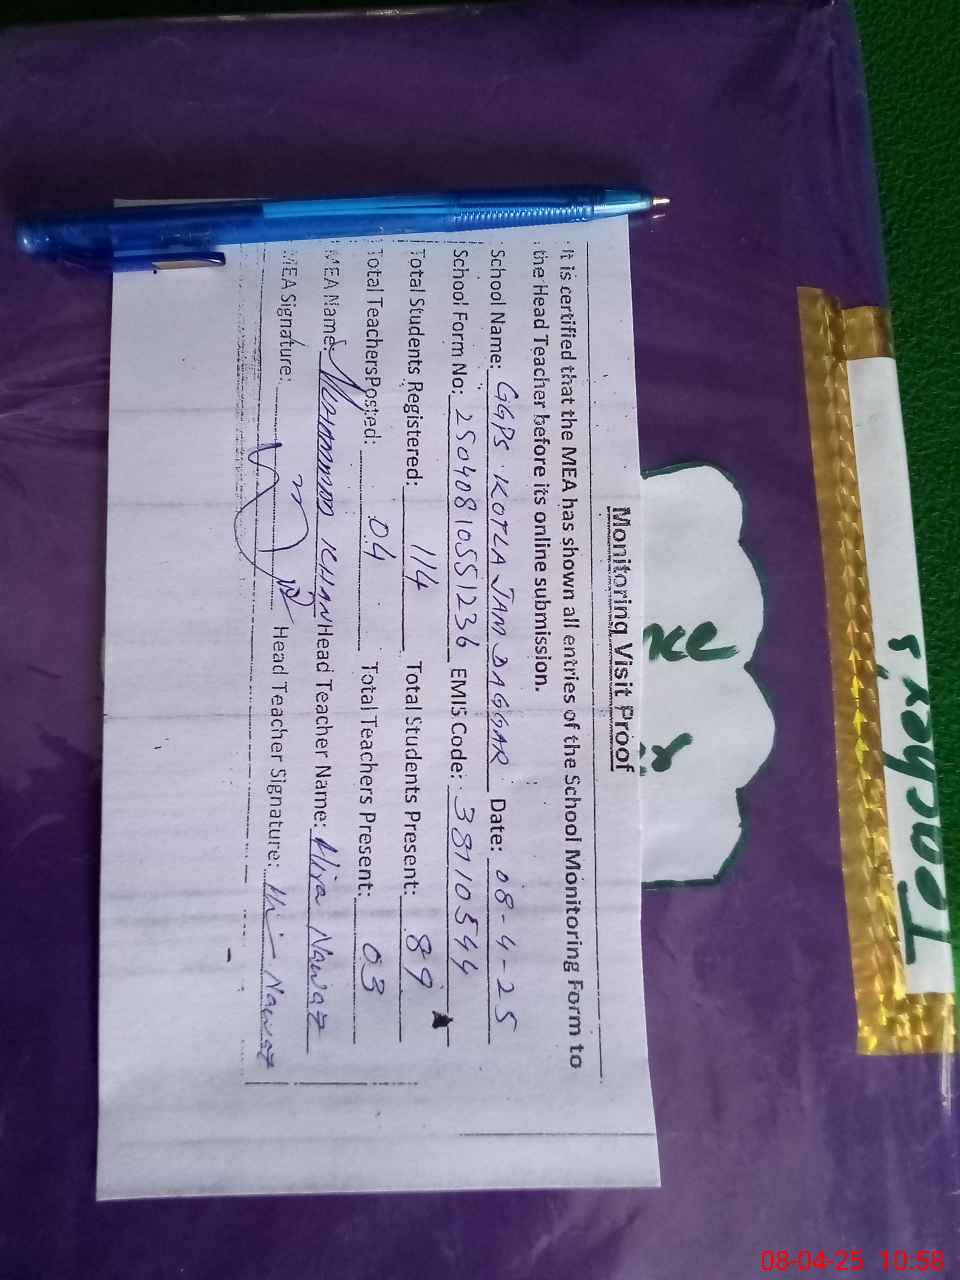 Monitoring Visit Proof
It is certified that the MEA has shown all entries of the School Monitoring Form to
the Head Teacher before its online submission.
School Name: GGPS KOTLA JAM DAGGAR Date: 08-4-25
School Form No: 25040810551236 EMIS Code: 38710544
Total Students Registered: 114 Total Students Present: 89
Total TeachersPosted: 04 Total Teachers Present: 03
MEA Name: MUHAMMAD KHAN Head Teacher Name: Hira Nawaz
MEA Signature: Head Teacher Signature: Nawaz
08-04-25 10:58